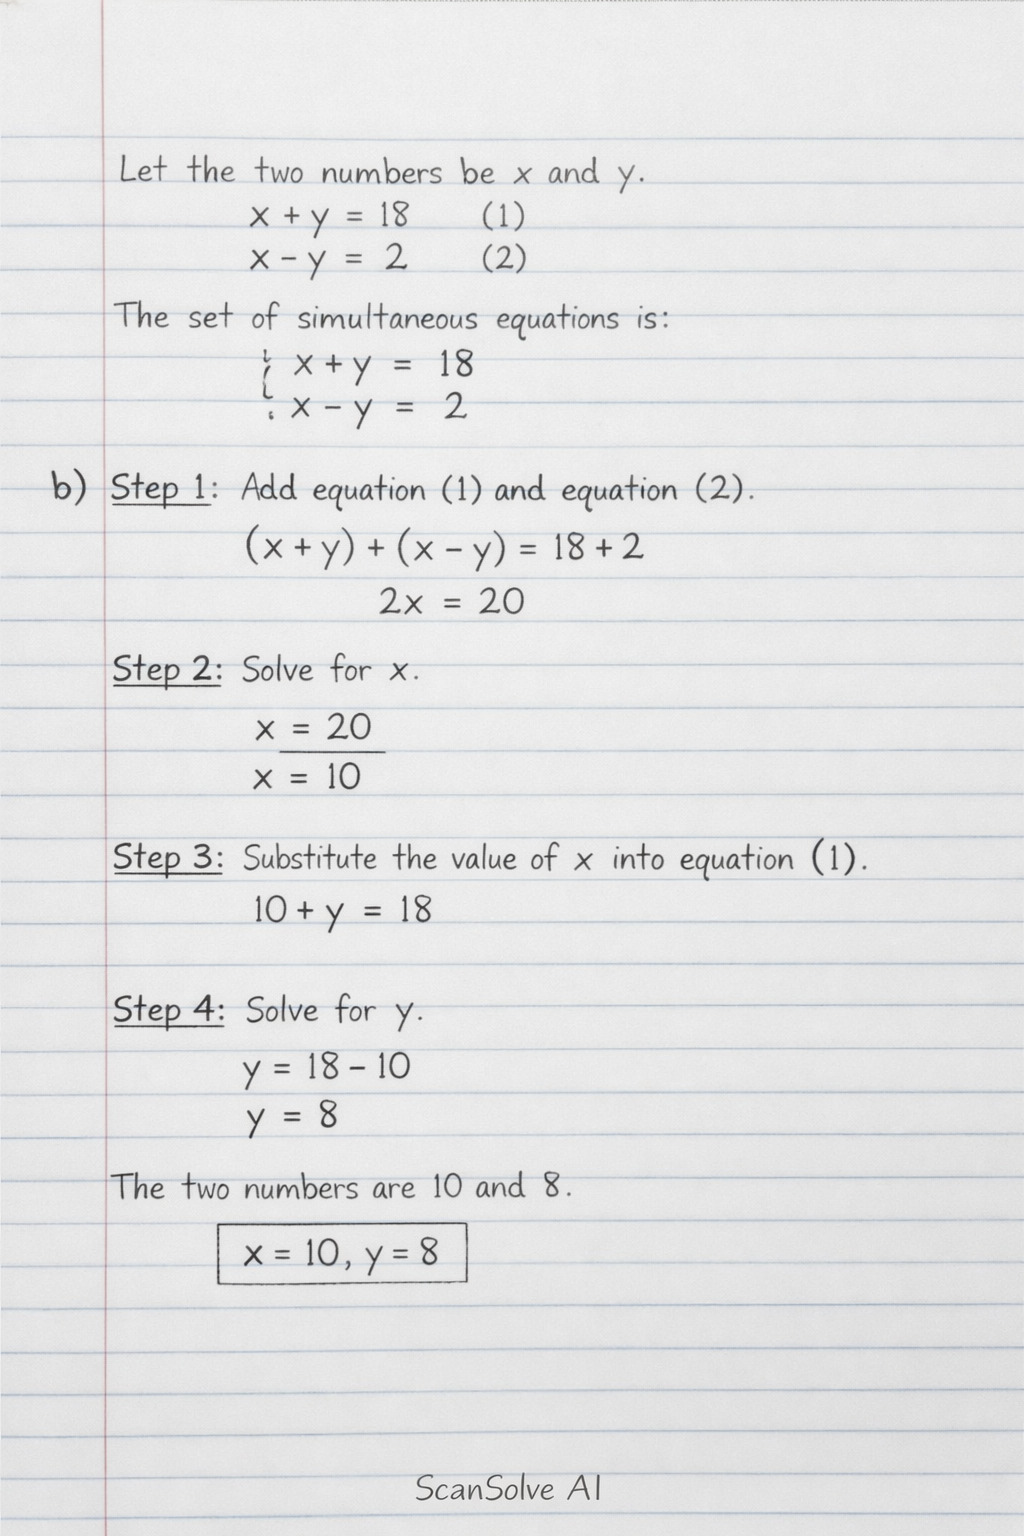 Let the two numbers be x and y.
x + y = 18 (1)
x - y = 2 (2)
The set of simultaneous equations is:
x + y = 18
x - y = 2
b) Step 1: Add equation (1) and equation (2).
(x + y) + (x - y) = 18 + 2
2x = 20
Step 2: Solve for x.
x = 20
x = 10
Step 3: Substitute the value of x into equation (1).
10 + y = 18
Step 4: Solve for y.
y = 18 - 10
y = 8
The two numbers are 10 and 8.
x = 10, y = 8
ScanSolve AI